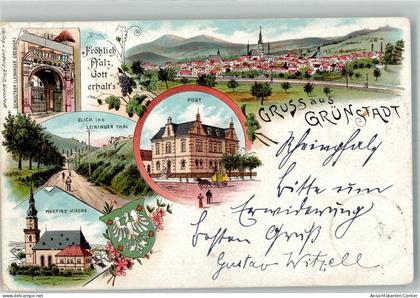 Fröhlich
Pfalz,
Gott
erhalt's
GRUSS aus
GRÜNSTADT
POST
BLICK ins
LEININGER THAL
MARTINS-KIRCHE
Bitte um
Erwiderung
Besten Gruß
Gustav Witzell
Ansichtskarten-Center